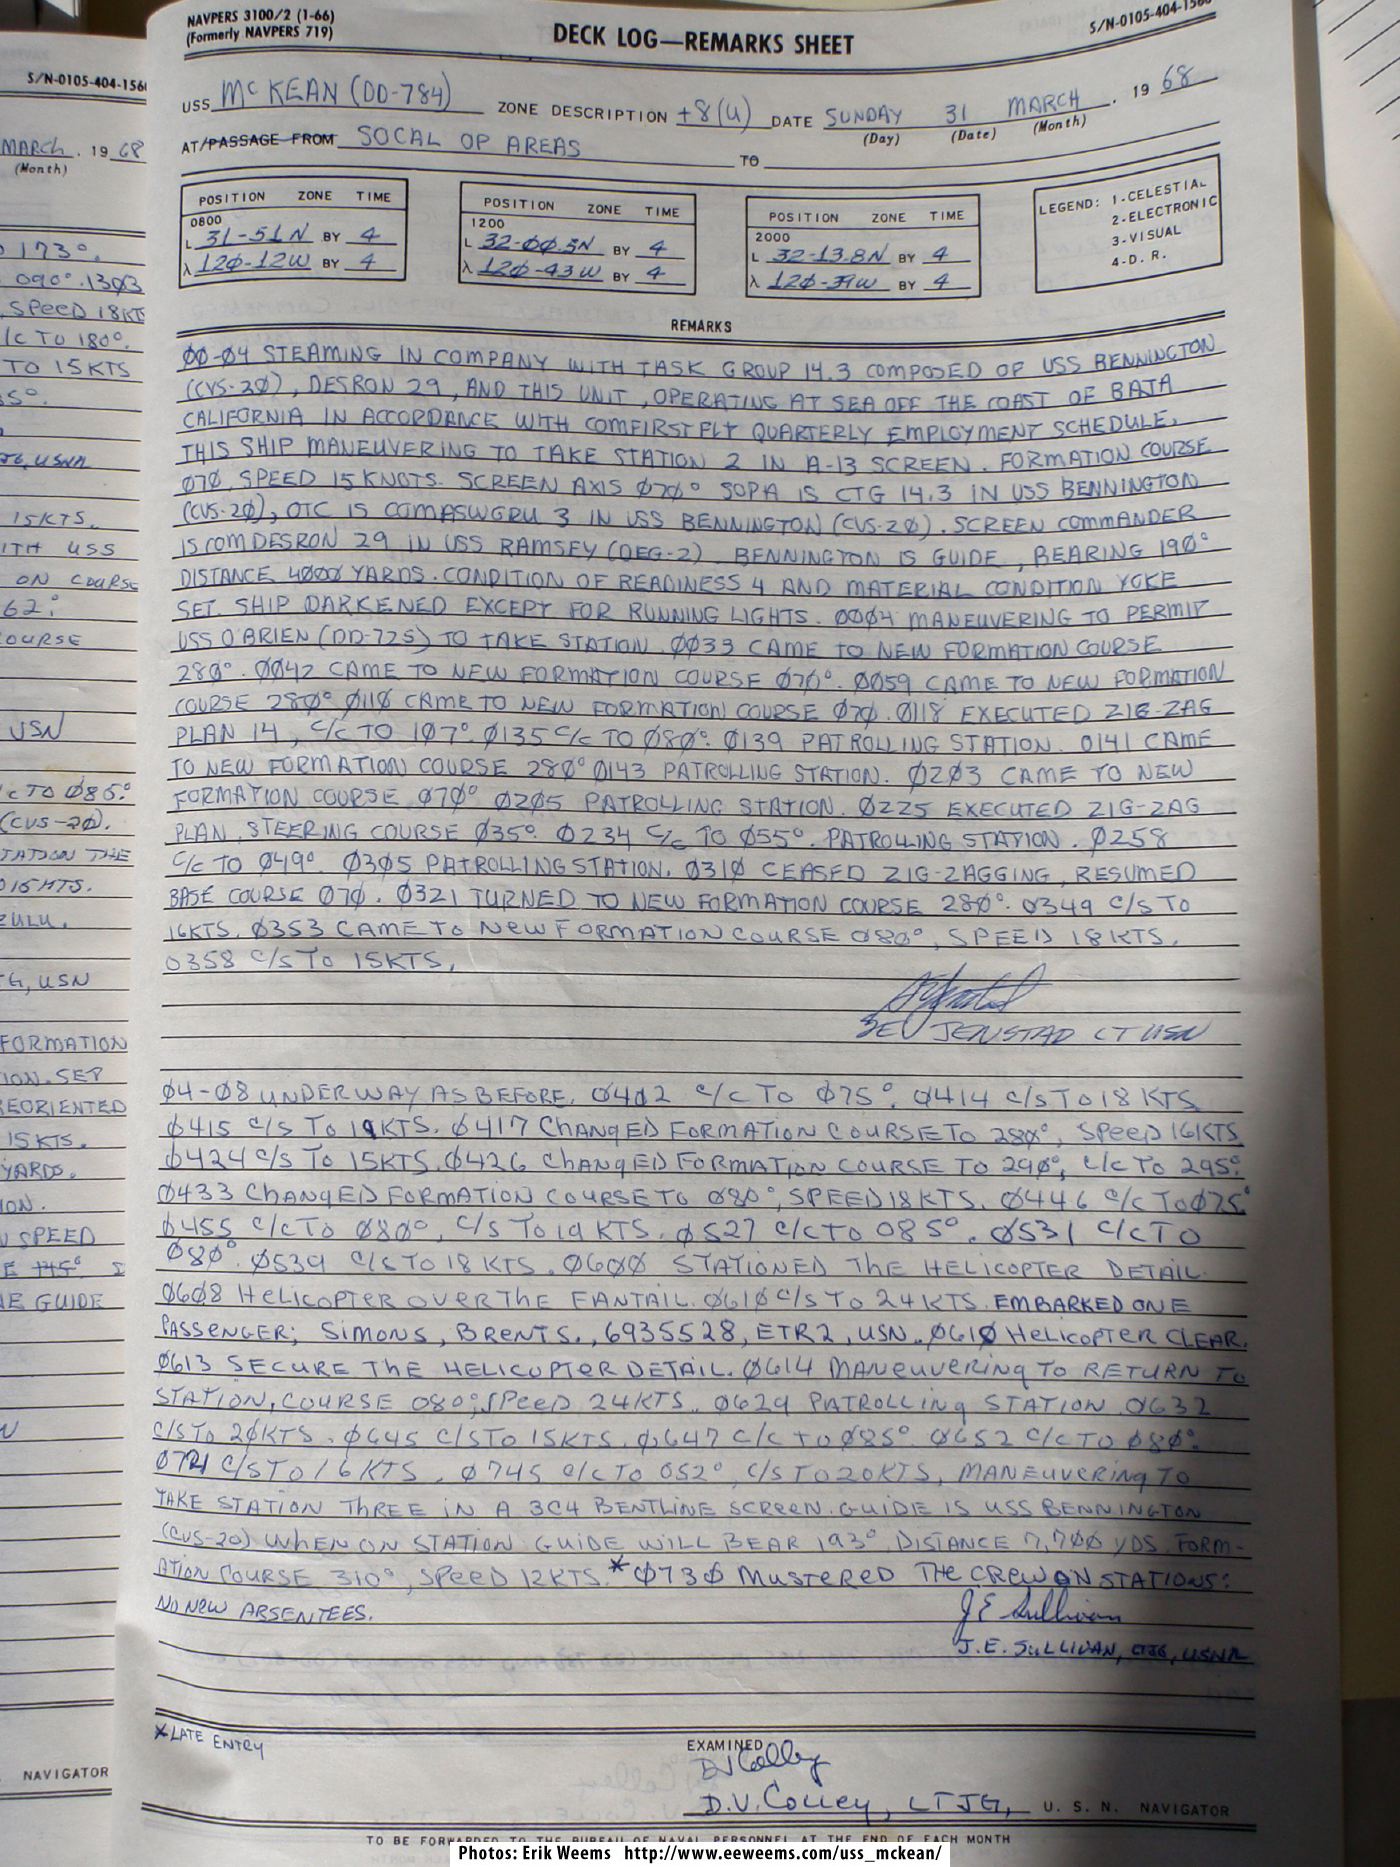 S/N-0105-404-156
MARCH. 19 68
(Month)
173°.
090°.1303
SPEED 18KTS
C/C TO 180°.
TO 15KTS
USNR
15KTS.
WITH USS
ON COURSE
62°
COURSE
USN
C TO 085°
(CVS-20).
STATION THE
015KTS.
ZULU.
TG, USN
FORMATION
ION. SEP
REORIENTED
15 KTS.
YARDS.
ION.
SPEED
E 145° I
HE GUIDE
NAVIGATOR
NAVPERS 3100/2 (1-66)
(Formerly NAVPERS 719)
DECK LOG—REMARKS SHEET
S/N-0105-404-1560
USS MCKEAN (DD-784) ZONE DESCRIPTION +8(U) DATE SUNDAY 31 MARCH, 19 68
(Day) (Date) (Month)
AT/PASSAGE FROM SOCAL OP AREAS TO
POSITION ZONE TIME
0800
L 31-51N BY 4
λ 120-12W BY 4
POSITION ZONE TIME
1200
L 32-00.5N BY 4
λ 120-43W BY 4
POSITION ZONE TIME
2000
L 32-13.8N BY 4
λ 120-39W BY 4
LEGEND: 1-CELESTIAL
2-ELECTRONIC
3-VISUAL
4-D. R.
REMARKS
00-04 STEAMING IN COMPANY WITH TASK GROUP 14.3 COMPOSED OF USS BENNINGTON
(CVS-20), DESRON 29, AND THIS UNIT, OPERATING AT SEA OFF THE COAST OF BAJA
CALIFORNIA IN ACCORDANCE WITH COMFIRSTFLT QUARTERLY EMPLOYMENT SCHEDULE.
THIS SHIP MANEUVERING TO TAKE STATION 2 IN A-13 SCREEN. FORMATION COURSE
070, SPEED 15 KNOTS. SCREEN AXIS 070° SOPA IS CTG 14.3 IN USS BENNINGTON
(CVS-20), OTC IS COMASWGRU 3 IN USS BENNINGTON (CVS-20). SCREEN COMMANDER
IS COMDESRON 29 IN USS RAMSEY (DEG-2). BENNINGTON IS GUIDE, BEARING 190°
DISTANCE 4000 YARDS. CONDITION OF READINESS 4 AND MATERIAL CONDITION YOKE
SET. SHIP DARKENED EXCEPT FOR RUNNING LIGHTS. 0004 MANEUVERING TO PERMIT
USS O'BRIEN (DD-725) TO TAKE STATION. 0033 CAME TO NEW FORMATION COURSE
280°. 0042 CAME TO NEW FORMATION COURSE 070°. 0059 CAME TO NEW FORMATION
COURSE 280° 0110 CAME TO NEW FORMATION COURSE 070. 0118 EXECUTED ZIG-ZAG
PLAN 14, C/C TO 107°. 0135 C/C TO 080°. 0139 PATROLLING STATION. 0141 CAME
TO NEW FORMATION COURSE 280° 0143 PATROLLING STATION. 0203 CAME TO NEW
FORMATION COURSE 070° 0205 PATROLLING STATION. 0225 EXECUTED ZIG-ZAG
PLAN, STEERING COURSE 035°. 0234 C/C TO 055°. PATROLLING STATION. 0258
C/C TO 049°. 0305 PATROLLING STATION. 0310 CEASED ZIG-ZAGGING, RESUMED
BASE COURSE 070. 0321 TURNED TO NEW FORMATION COURSE 280°. 0349 C/S TO
16KTS. 0353 CAME TO NEW FORMATION COURSE 080°, SPEED 18 KTS.
0358 C/S TO 15KTS.
JENSTAD LT USN
04-08 UNDERWAY AS BEFORE. 0402 C/C TO 075°. 0414 C/S TO 18 KTS
0415 C/S TO 19KTS. 0417 CHANGED FORMATION COURSE TO 280°, SPEED 16KTS
0424 C/S TO 15KTS. 0426 CHANGED FORMATION COURSE TO 290°, C/C TO 295°.
0433 CHANGED FORMATION COURSE TO 080°, SPEED 18 KTS. 0446 C/C TO 075°
0455 C/C TO 080°, C/S TO 19 KTS. 0527 C/C TO 085°. 0531 C/C TO
080°. 0539 C/S TO 18 KTS. 0600 STATIONED THE HELICOPTER DETAIL.
0608 HELICOPTER OVER THE FANTAIL. 0610 C/S TO 24 KTS. EMBARKED ONE
PASSENGER; SIMONS, BRENT S., 6935528, ETR2, USN. 0610 HELICOPTER CLEAR.
0613 SECURE THE HELICOPTER DETAIL. 0614 MANEUVERING TO RETURN TO
STATION, COURSE 080°, SPEED 24KTS. 0629 PATROLLING STATION. 0632
C/S TO 20KTS. 0645 C/S TO 15KTS. 0647 C/C TO 085°. 0652 C/C TO 080°.
0721 C/S TO 16 KTS. 0745 C/C TO 052°, C/S TO 20KTS, MANEUVERING TO
TAKE STATION THREE IN A 3C4 BENTLINE SCREEN. GUIDE IS USS BENNINGTON
(CVS-20) WHEN ON STATION GUIDE WILL BEAR 193°, DISTANCE 7,700 YDS. FORM-
ATION COURSE 310°, SPEED 12KTS. *0730 MUSTERED THE CREW ON STATIONS:
NO NEW ABSENTEES.
J E Sullivan
J. E. SULLIVAN, LTJG, USNR
*LATE ENTRY
EXAMINED
DV Colley
D.V. COLLEY, LTJG, U. S. N. NAVIGATOR
TO BE FORWARDED TO THE BUREAU OF NAVAL PERSONNEL AT THE END OF EACH MONTH
Photos: Erik Weems http://www.eeweems.com/uss_mckean/